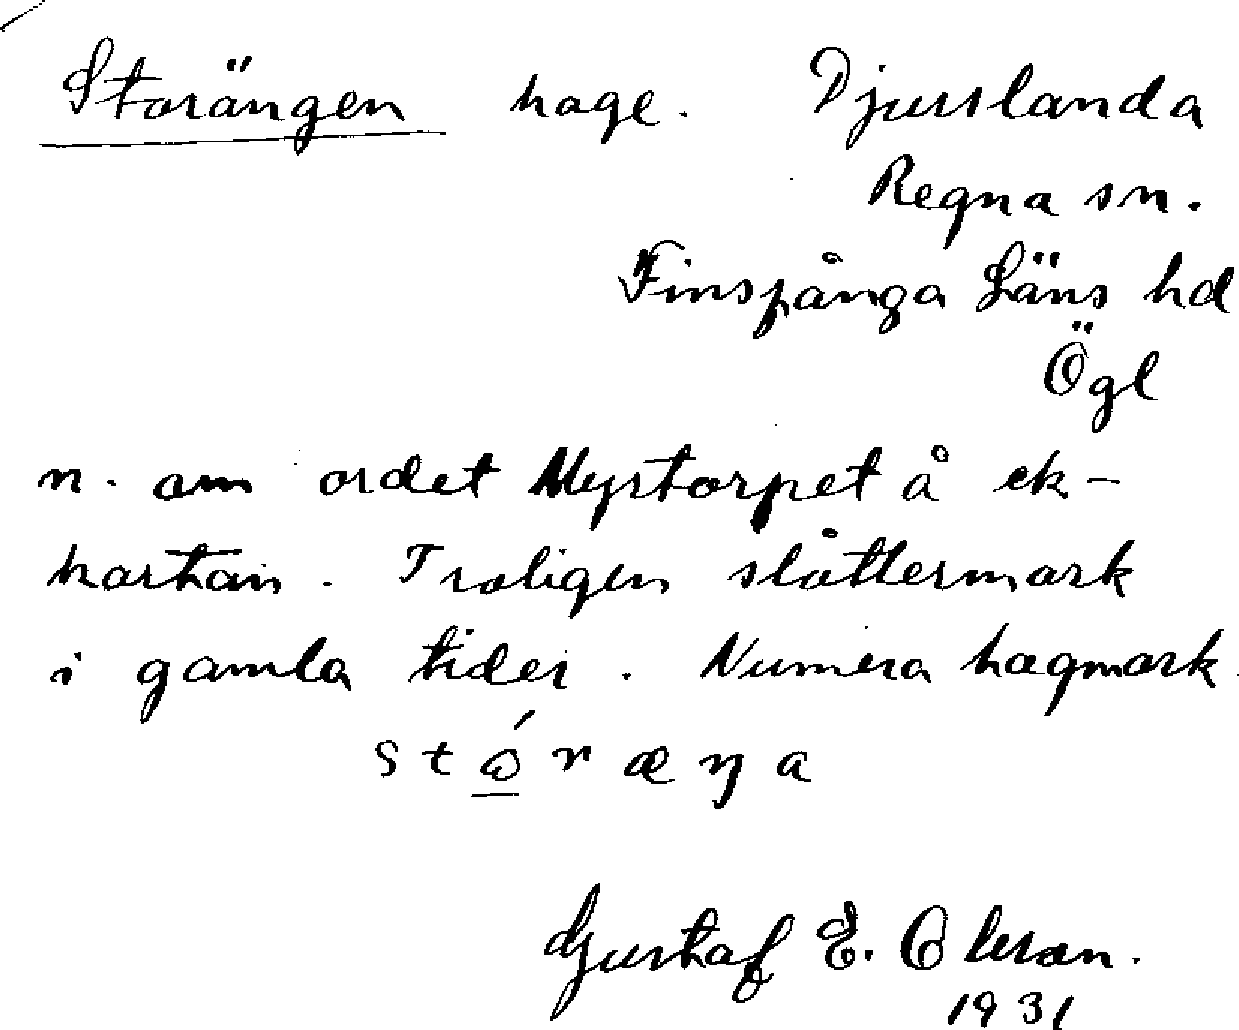 Storängen hage. Djurslanda
Regna sn.
Finspånga Läns hd
Ögl
n. om ordet Myrtorpet å ek-
kartan. Troligen slåttermark
i gamla tider. Numera hagmark.
stǿræŋa
Gustaf E. Olsson.
1931